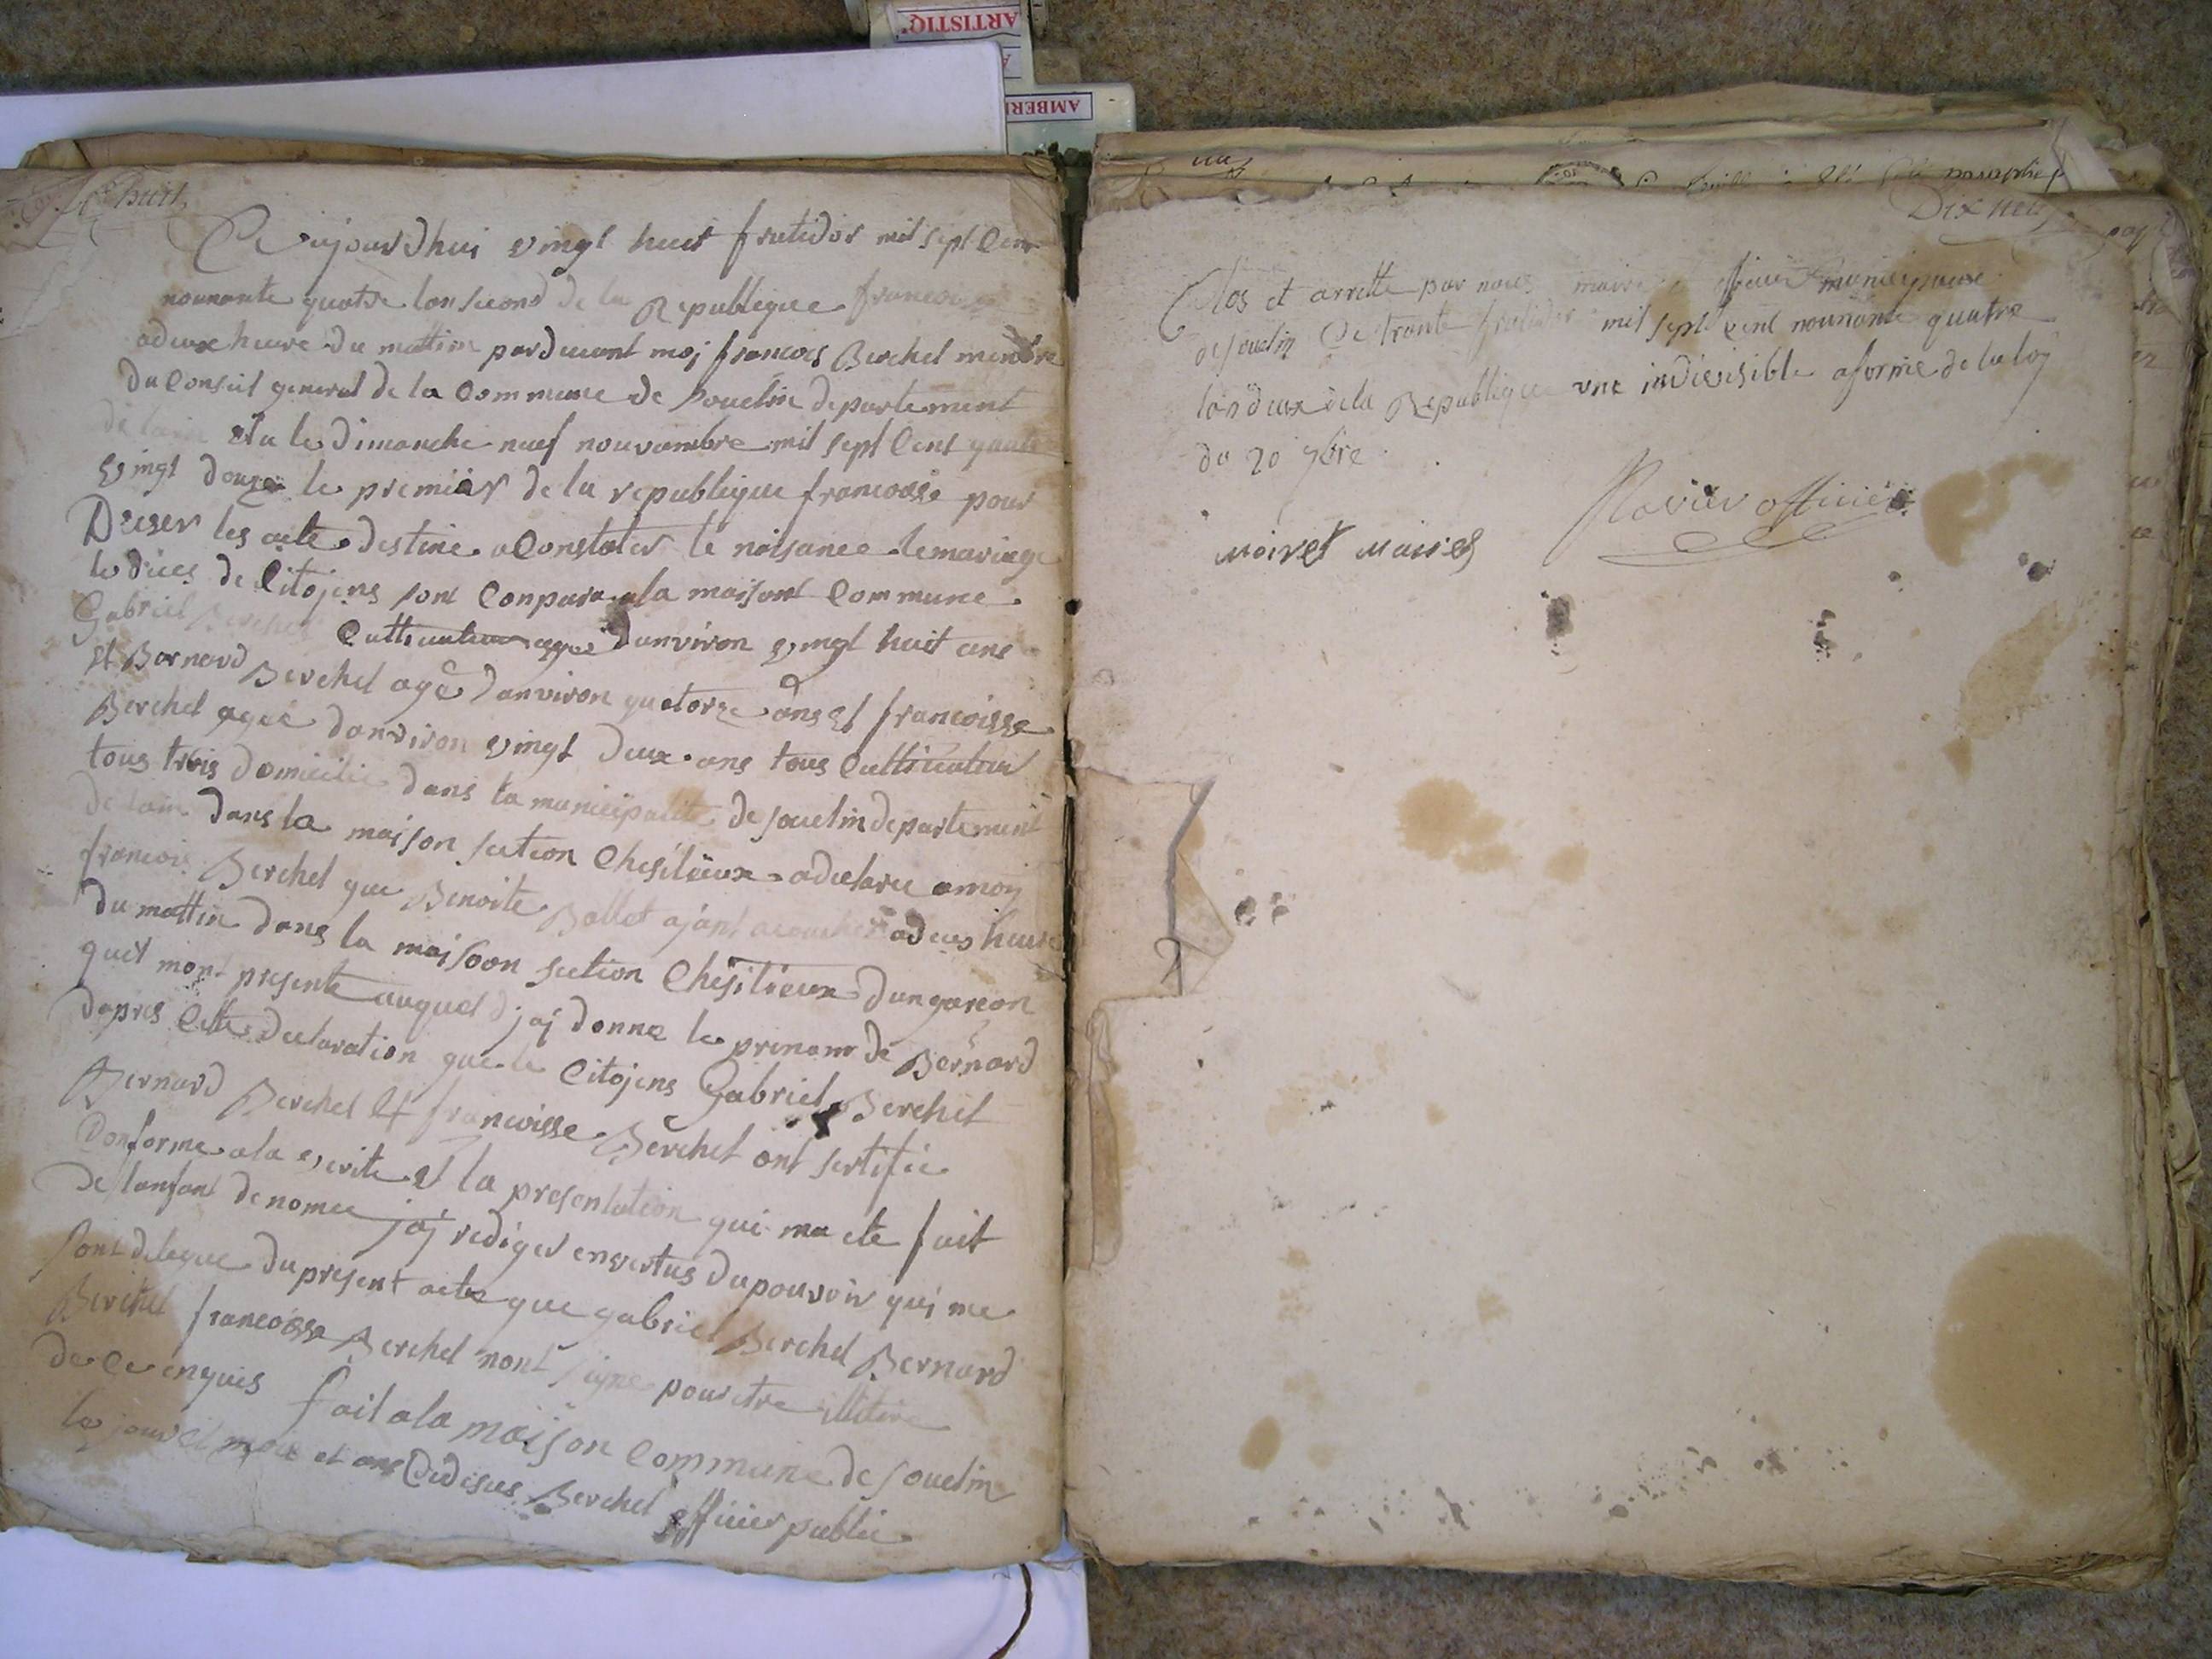 ARTISTIQ'
AMBERI
huit
Ce aujourdhui vingt huit frutidor mil sept Cent
nounante quatre lan second de la Republique francoise
a deux heure du mattin pardevant moj francois Berchet menbre
du Conseil general de la Commune de Souclin departement
de lain elu le dimanche neuf nouvambre mil sept Cent quatre
vingt douze le premier de la republique francoise pour
Dreser les acte destine a Constater le naisance le mariage
le dices de Citojens sont Conparu a la maisont Commune
Gabriel Berchet Cultivateur agee danviron vingt huit ans
et Bernard Berchet agé danviron quatorze ans et francoisse
Berchet agée danviron vingt deux ans tous Cultivateur
tous trois domicilie dans la municipalite de souclin departement
de lain dans la maison section Chesilieux a declaree a moj
francois Berchet que Benoite Ballet ajant acouchee a deus heure
du mattin dans la maisoon section Chesilieux dun garcon
quil mont presente auquel jaj donne le prenom de Bernard
dapres Cette declaration que le Citojens Gabriel Berchet
Bernard Berchet et francoisse Berchet ont sertifie
Conforme a la verite et la presentation qui ma ete fait
de lanfant denomee jaj rediger en vertus du pouvoir qui me
sont delegue du present acte que gabriel Berchet Bernard
Berchet francoisse Berchet nont signe pour etre illitire
de Ce enquis fait a la maison Commune de souclin
le jour et mois et ans Cidesus Berchet officier public
Dix neuf
Clos et arrette par nous maire et officier municipaux
de souclin Ce trante frutidor mil sept cent nounante quatre
lan deux de la Republique une indivisible a forme de la loy
du 20 7bre
moiret maire Ravier officier